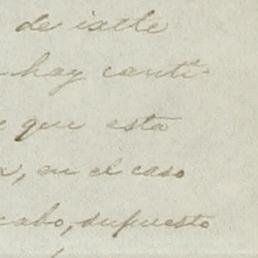 de
hay canti-
que esta
en el caso
cabo, supuesto